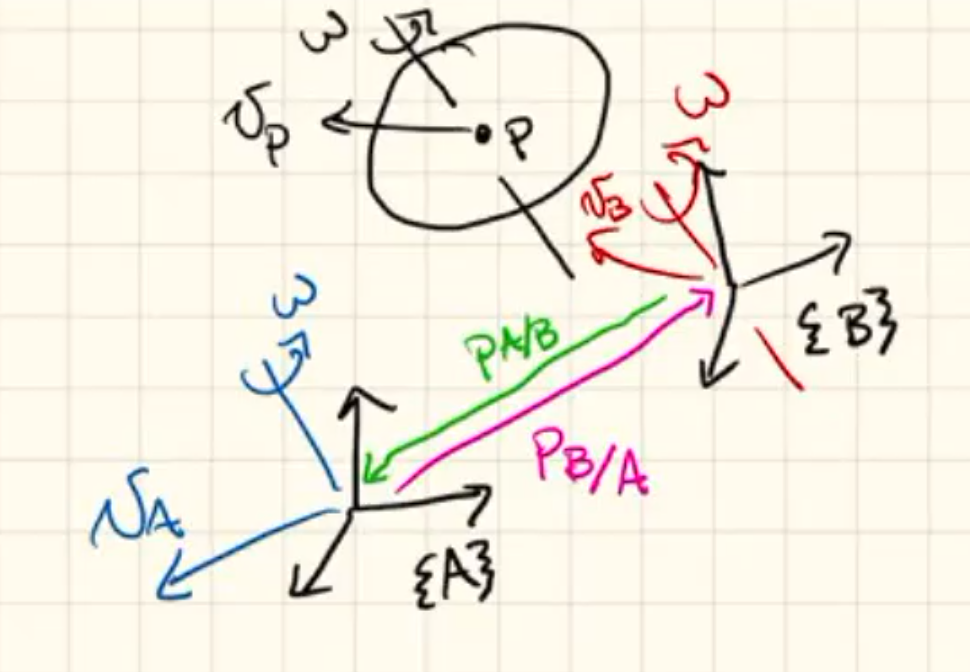 ω
v_P
P
ω
v_B
ω
P_A/B
{B}
P_B/A
v_A
{A}